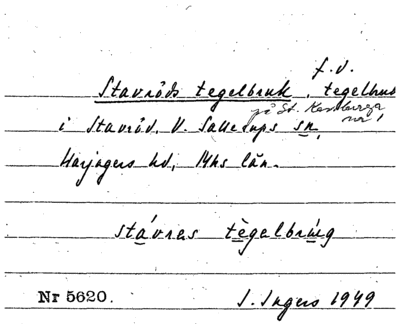 f.d.
Stavröds tegelbruk, tegelbruk
på St.
i Stavröd, V. Sallerups sn,
Harjagers hd, Mhs län.
stávres tègelbrúg
Nr 5620.
I. Ingers 1949